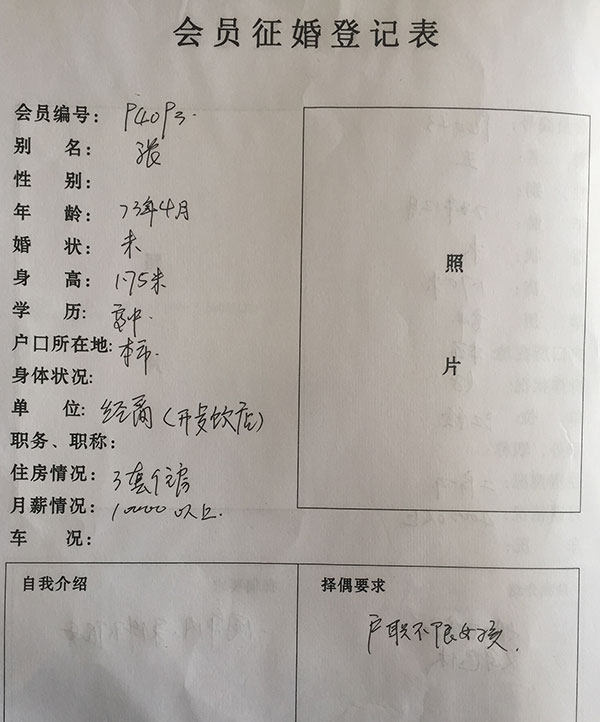 会员征婚登记表
会员编号： P40P3.
别 名： 张
性 别：
年 龄： 73年4月
婚 状： 未
身 高： 1.75米
学 历： 高中.
户口所在地： 本市.
身体状况：
单 位： 经商（开餐饮店）
职务、职称：
住房情况： 3套住房
月薪情况： 10000以上.
车 况：
照
片
自我介绍
择偶要求
户职不限女孩.